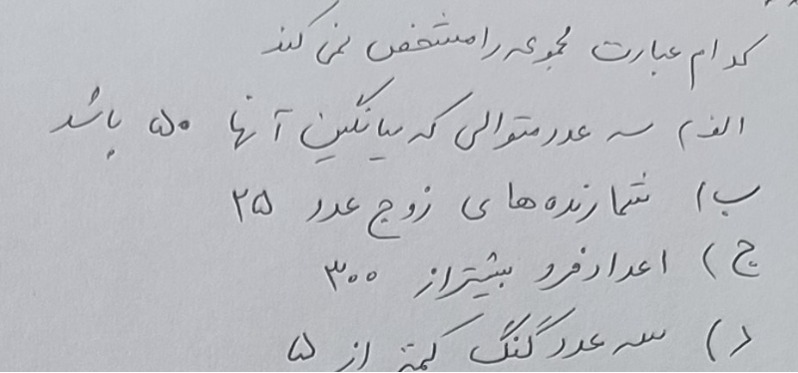 کدام عبارت مجموعه را مشخص نمی کند
الف) سه عدد متوالی که میانگین آنها ۵۰ باشد
ب) شمارنده های زوج عدد ۲۵
ج) اعداد فرد بیشتر از ۳۰۰
د) سه عدد گنگ کمتر از ۵